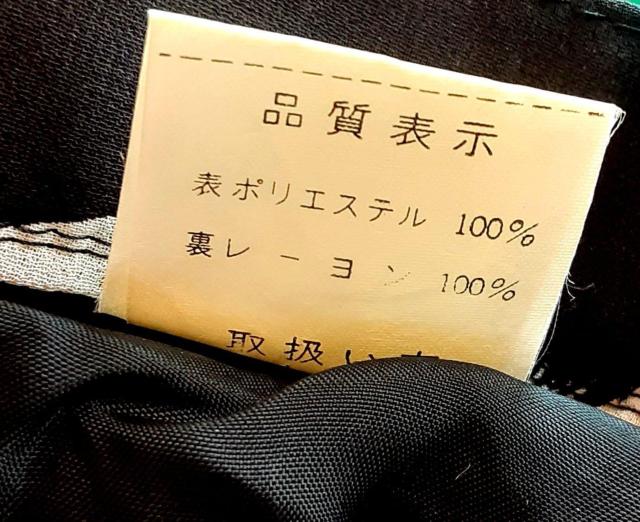 品質表示
表ポリエステル 100%
裏レーヨン 100%
取扱い